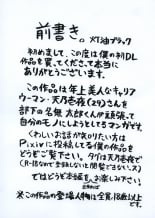 前書き。メガ油ブラック
初めまして、この度は僕の初DL
作品を買ってくださって本当に
ありがとうございます。
この作品は年上美人なキャリア
ウーマン・天乃壱夜(29)さんを
部下の名無太郎くんが頑張って
自分のモノにしようとするマンガです。
くわしいお話が知りたい方は
Pixivに投稿してる僕の作品を
どうぞご覧下さい。タグは天乃壱夜で
(R-18なので登録しないと閲覧できないっス)
ではどうぞ本編をお楽しみ下さい。
※この作品の登場人物は全員18歳以上
です。